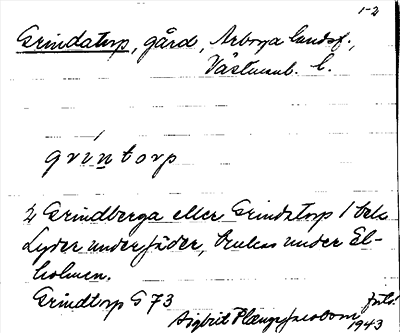 1-2
Grindatorp, gård, Arboga landsf.,
Västmanl. l.
grintorp
2 Grindberga eller Grindatorp 1 bel.
Lyder under Säder, brukas under El-
holmen.
Grindtorp G 73
Sigbrit Plænge Jacobson juli
1943